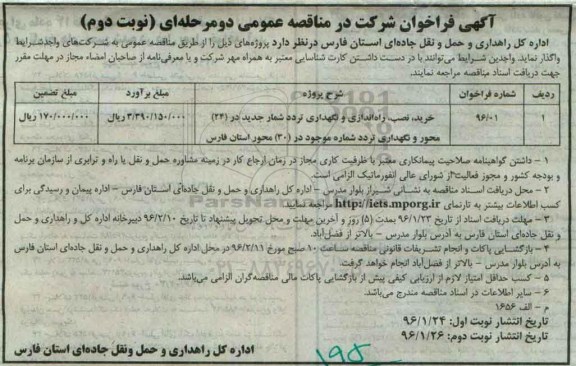 آگهی فراخوان شرکت در مناقصه عمومی دومرحله‌ای (نوبت دوم)
اداره کل راهداری و حمل و نقل جاده‌ای استان فارس درنظر دارد پروژه‌های ذیل را از طریق مناقصه عمومی به شرکت‌های واجدشرایط
واگذار نماید. واجدین شرایط می‌توانند با در دست داشتن کارت شناسایی معتبر به همراه مهر شرکت و یا معرفی‌نامه از صاحبان امضاء مجاز در مهلت مقرر
جهت دریافت اسناد مناقصه مراجعه نمایند.
ردیف شماره فراخوان شرح پروژه مبلغ برآورد مبلغ تضمین
۱ ۹۶/۰۱ خرید، نصب، راه‌اندازی و نگهداری تردد شمار جدید در (۲۴) ۳/۳۹۰/۱۵۰/۰۰۰ ریال ۱۷۰/۰۰۰/۰۰۰ ریال
محور و نگهداری تردد شماره موجود در (۳۰) محور استان فارس
۱ – داشتن گواهینامه صلاحیت پیمانکاری معتبر با ظرفیت کاری مجاز در زمان ارجاع کار در زمینه مشاوره حمل و نقل یا راه و ترابری از سازمان برنامه
و بودجه کشور و مجوز فعالیت از شورای عالی انفورماتیک الزامی است.
۲ – محل دریافت اسناد مناقصه به نشانی شیراز بلوار مدرس – اداره کل راهداری و حمل و نقل جاده‌ای استان فارس – اداره پیمان و رسیدگی برای
کسب اطلاعات بیشتر به تارنمای http://iets.mporg.ir مراجعه نمایند.
۳ – مهلت دریافت اسناد از تاریخ ۹۶/۱/۲۳ بمدت (۵) روز و آخرین مهلت و محل تحویل پیشنهاد تا تاریخ ۹۶/۲/۱۰ دبیرخانه اداره کل و راهداری و حمل
و نقل جاده‌ای استان فارس به آدرس بلوار مدرس – بالاتر از فضل‌آباد.
۴ – بازگشایی پاکات و انجام تشریفات قانونی مناقصه ساعت ۱۰ صبح مورخ ۹۶/۲/۱۱ در محل اداره کل راهداری و حمل و نقل جاده‌ای استان فارس
به آدرس بلوار مدرس – بالاتر از فضل‌آباد انجام خواهد گرفت.
۵ – کسب حداقل امتیاز لازم از ارزیابی کیفی پیش از بازگشایی پاکات مالی مناقصه‌گران الزامی می‌باشد.
۶ – سایر اطلاعات در اسناد مناقصه مندرج می‌باشد.
م – الف ۱۶۵۶
تاریخ انتشار نوبت اول: ۹۶/۱/۲۴
تاریخ انتشار نوبت دوم: ۹۶/۱/۲۶
اداره کل راهداری و حمل ونقل جاده‌ای استان فارس